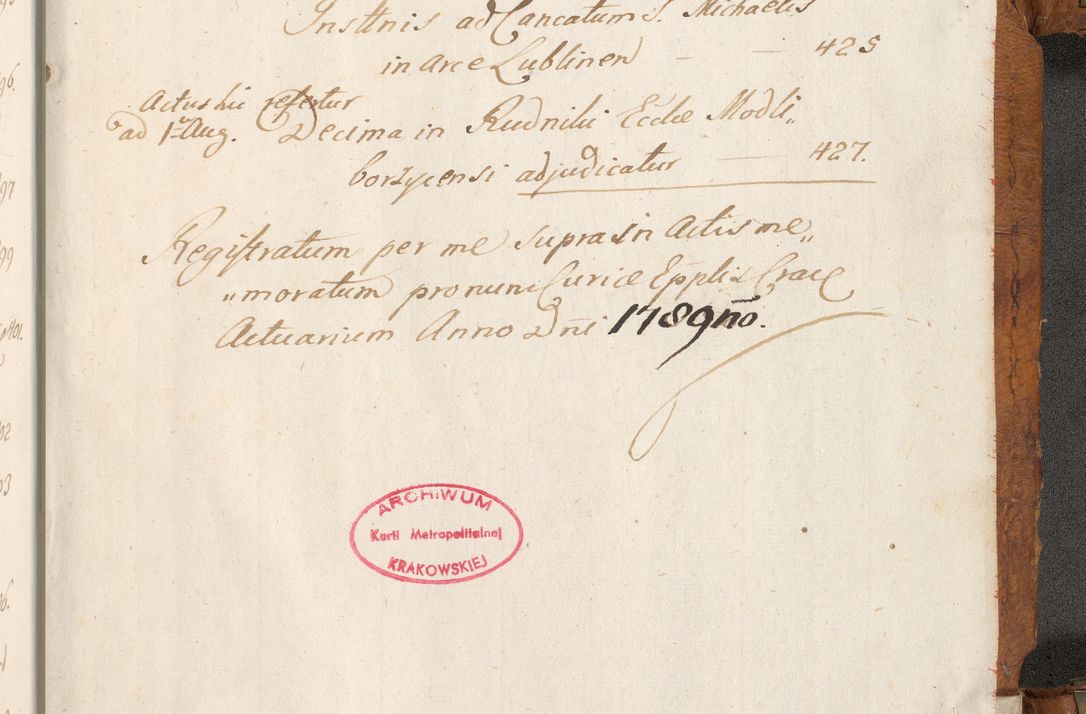 Insttnis ad Cancatum S. Michaelis
in arce Lublinen — — 425
Actus hic refertur
ad 1. Aug.
Decima in Rudniki Eccle Modli„
borzycensi adjudicatur — 427.
Registratum per me supra in Actis me„
„moratum pro nunc Curiæ Epplis Crac
Actuarium Anno Dni 1789no.
ARCHIWUM
Kurii Metropolitalnej
KRAKOWSKIEJ
96.
97
99
401.
02
03